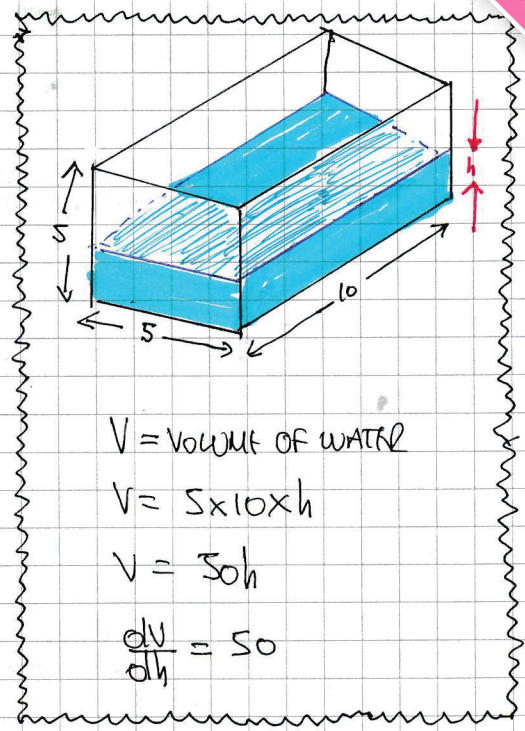 h
5
5
10
V = VOLUME OF WATER
V = 5x10xh
V = 50h
dV
dh
= 50